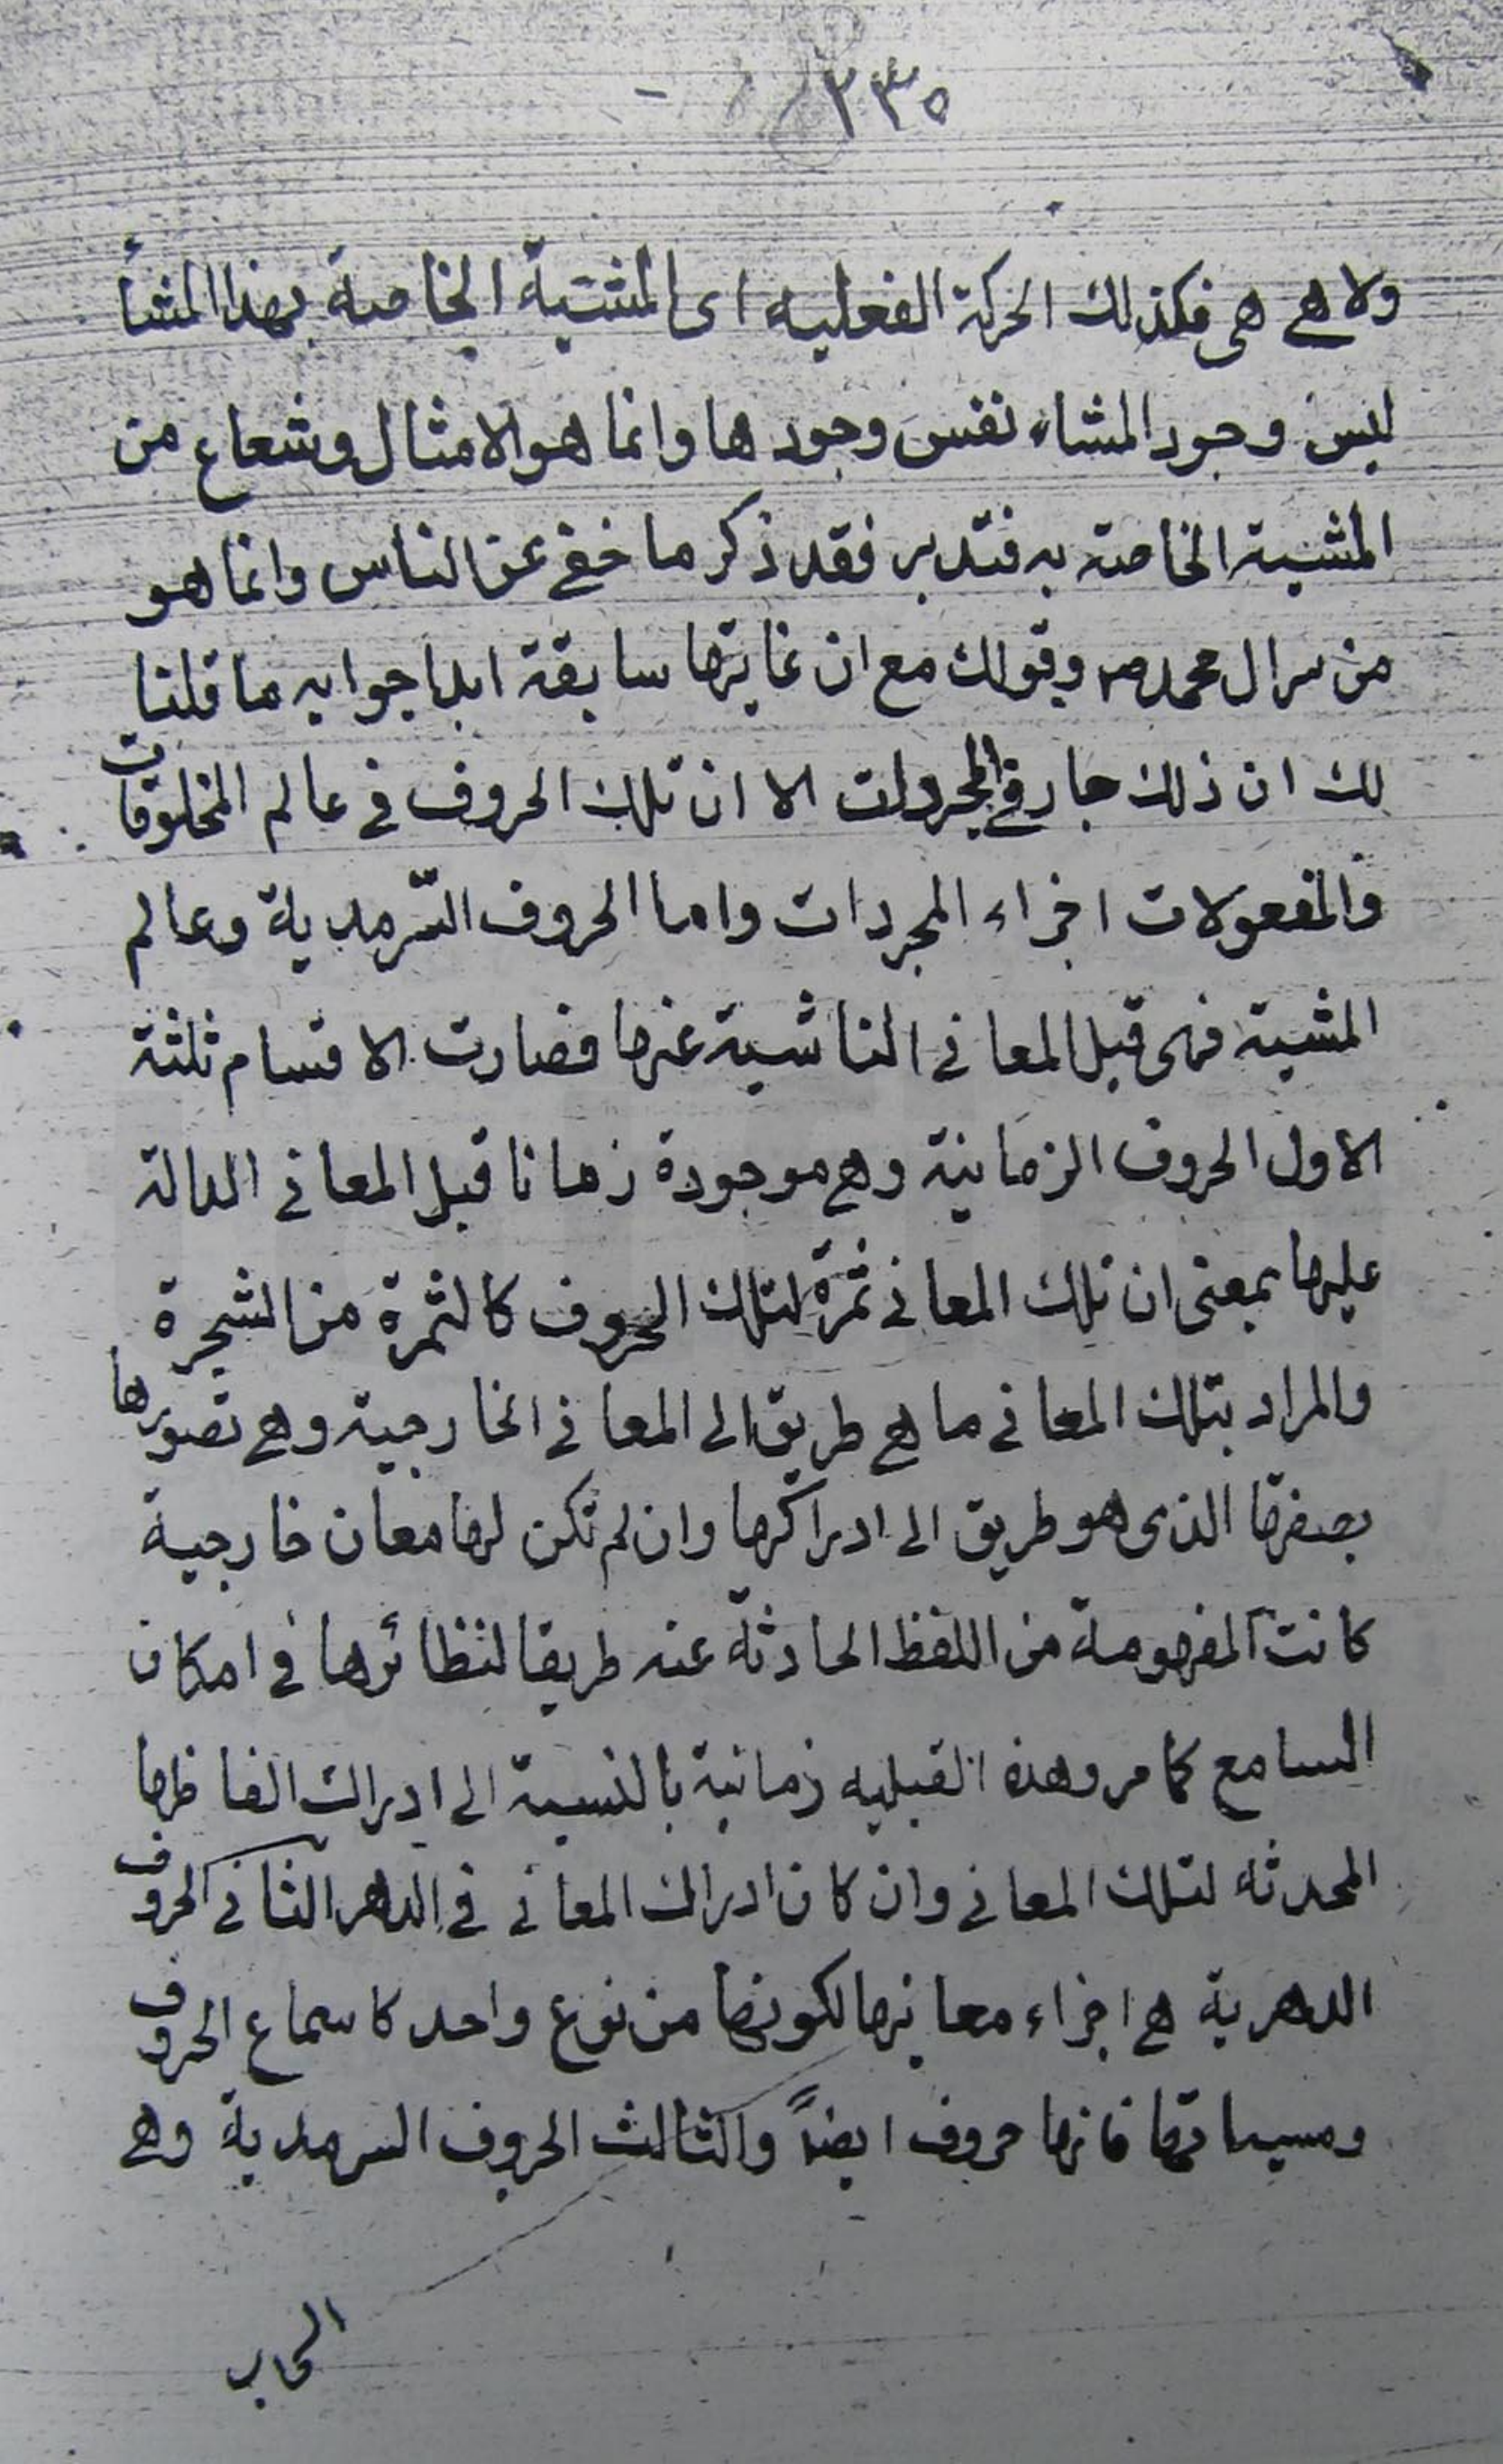 ٢٣٥
ولا هي هي فكذلك الحركة الفعليه اى المشية الخاصة بهذا المشأ
ليس وجود المشاء نفس وجودها وانما هو الا مثال وشعاع من
المشية الخاصة به فتدبر فقد ذكر ما خفي عن الناس وانما هو
من سر ال محمد ص وقولك مع ان غايتها سابقة ابدا جوابه ما قلنا
لك ان ذلك جار في المجردات الا ان تلك الحروف في عالم المخلوقات
والمفعولات اجزاء المجردات واما الحروف السّرمدية وعالم
المشية فهى قبل المعاني الناشية عنها فصارت الاقسام ثلثة
الاول الحروف الزمانية وهي موجودة زمانا قبل المعاني الدالة
عليها بمعنى ان تلك المعاني ثمرة لتلك الحروف كالثمرة من الشجرة
والمراد بتلك المعاني ما هي طريق الى المعاني الخارجية وهي تصورها
بصفتها الذى هو طريق الى ادراكها وان لم تكن لها معان خارجية
كانت المفهومة من اللفظ الحادثة عنه طريقا لنظائرها في امكان
السامع كما مر وهذه القبليه زمانية بالنسبة الى ادراك الفاظها
المحدثه لتلك المعاني وان كان ادراك المعاني في الدهر الثاني الحروف
الدهرية هي اجزاء معانيها لكونها من نوع واحد كاسماع الحروف
ومسيماتها فانها حروف ايضاً والثالث الحروف السرمدية وهي